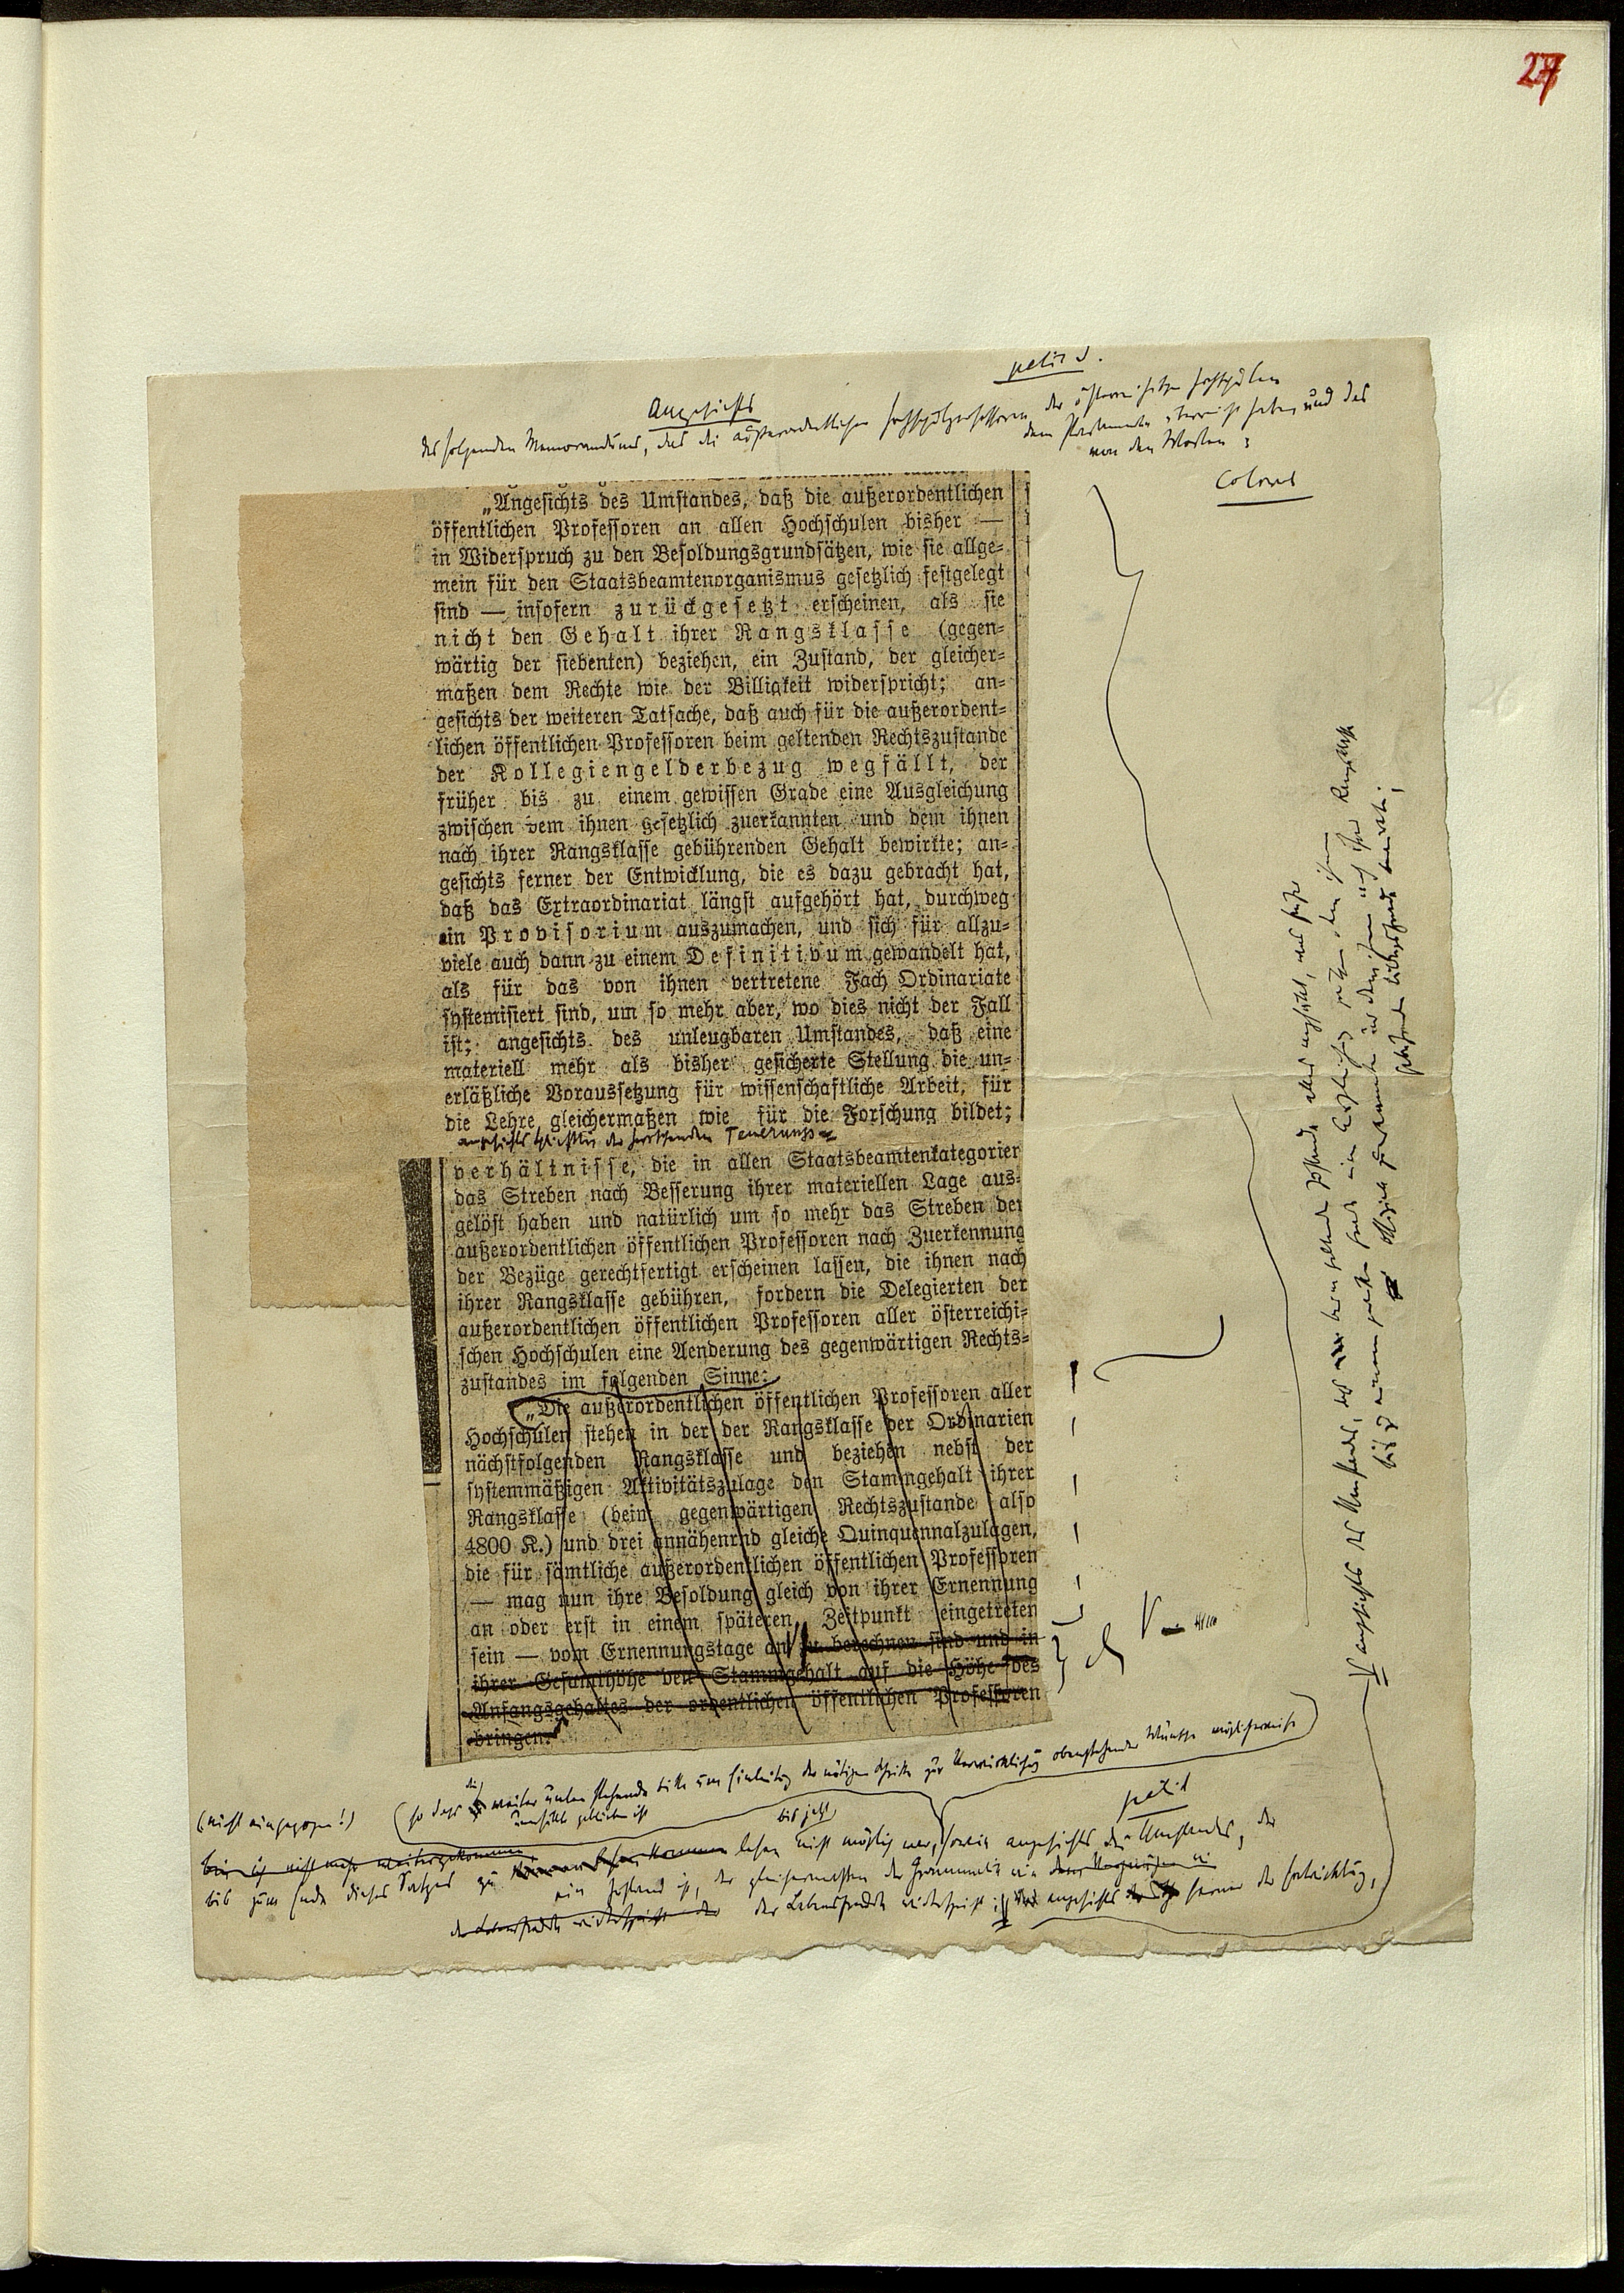 27
petit
Angesichts
des folgenden Memorandums, das die außerordentlichen Hochschulprofessoren der österreichischen Hochschulen
dem Parlamente überreicht haben und das
von den Worten:
Colonel
„Angesichts des Umstandes, daß die außerordentlichen
öffentlichen Professoren an allen Hochschulen bisher —
in Widerspruch zu den Besoldungsgrundsätzen, wie sie allge-
mein für den Staatsbeamtenorganismus gesetzlich festgelegt
sind — insofern zurückgesetzt erscheinen, als sie
nicht den Gehalt ihrer Rangsklasse (gegen-
wärtig der siebenten) beziehen, ein Zustand, der gleicher-
maßen dem Rechte wie der Billigkeit widerspricht; an-
gesichts der weiteren Tatsache, daß auch für die außerordent-
lichen öffentlichen Professoren beim geltenden Rechtszustande
der Kollegiengelderbezug wegfällt, der
früher bis zu einem gewissen Grade eine Ausgleichung
zwischen dem ihnen gesetzlich zuerkannten und dem ihnen
nach ihrer Rangsklasse gebührenden Gehalt bewirkte; an-
gesichts ferner der Entwicklung, die es dazu gebracht hat,
daß das Extraordinariat längst aufgehört hat, durchweg
ein Provisorium auszumachen, und sich für allzu-
viele auch dann zu einem Definitivum gewandelt hat,
als für das von ihnen vertretene Fach Ordinariate
systemisiert sind, um so mehr aber, wo dies nicht der Fall
ist; angesichts des unleugbaren Umstandes, daß eine
materiell mehr als bisher gesicherte Stellung die un-
erläßliche Voraussetzung für wissenschaftliche Arbeit, für
die Lehre gleichermaßen wie für die Forschung bildet;
angesichts schließlich der herrschenden Teuerungs-
verhältnisse, die in allen Staatsbeamtenkategorien
das Streben nach Besserung ihrer materiellen Lage aus-
gelöst haben und natürlich um so mehr das Streben der
außerordentlichen öffentlichen Professoren nach Zuerkennung
der Bezüge gerechtfertigt erscheinen lassen, die ihnen nach
ihrer Rangsklasse gebühren, fordern die Delegierten der
außerordentlichen öffentlichen Professoren aller österreichi-
schen Hochschulen eine Aenderung des gegenwärtigen Rechts-
zustandes im folgenden Sinne:
„Die außerordentlichen öffentlichen Professoren aller
Hochschulen stehen in der der Rangsklasse der Ordinarien
nächstfolgenden Rangsklasse und beziehen nebst der
systemmäßigen Aktivitätszulage den Stammgehalt ihrer
Rangsklasse (beim gegenwärtigen Rechtszustande also
4800 K.) und drei annähernd gleiche Quinquennalzulagen,
die für sämtliche außerordentlichen öffentlichen Professoren
— mag nun ihre Besoldung gleich von ihrer Ernennung
an oder erst in einem späteren Zeitpunkt eingetreten
sein — vom Ernennungstage an zu berechnen sind und in
ihrer Gesamthöhe den Stammgehalt auf die Höhe des
Anfangsgehaltes der ordentlichen öffentlichen Professoren
bringen.“
(nicht eingezogen!)
(so dass die weiter unten stehende Bitte um Einleitung der nötigen Schritte zur Verwirklichung obenstehender Wünsche möglicherweise
unerfüllt geblieben ist
petit
bis jetzt
bin ich nicht mehr weitergekommen
bis zum Ende dieses Satzes zu lesen nicht möglich war, sowie angesichts des Umstandes, der
ein Zustand ist, der gleichermassen der Grammatik wie
der Lebensfreude widerspricht; angesichts ferner der Entwicklung,
angesichts des Umstandes, daß beim geltenden Zustande alles wegfällt, was früher
bis zu einem gewissen Grade eine Ausgleichung zwischen dem ihnen